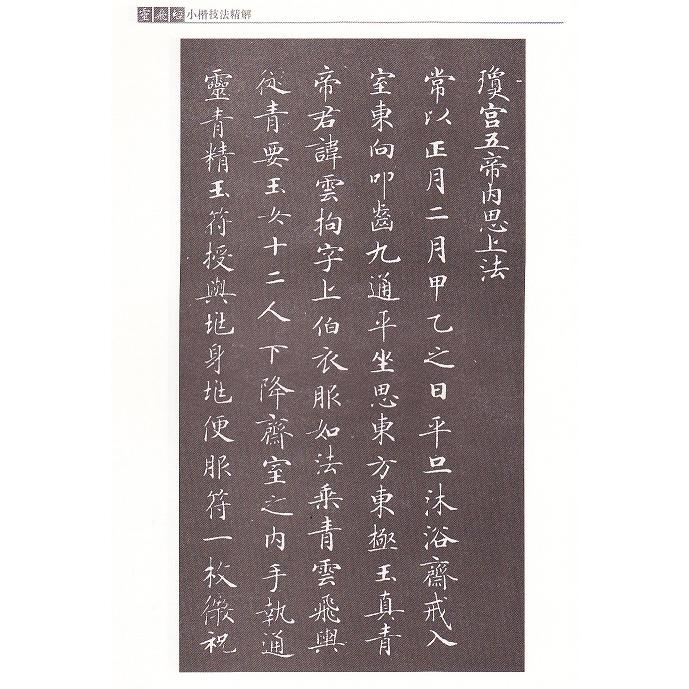 靈飛經小楷技法精解
瓊宮五帝內思上法
常以正月二月甲乙之日平旦沐浴齋戒入
室東向叩齒九通平坐思東方東極玉真青
帝君諱雲拘字上伯衣服如法乘青雲飛輿
從青要玉女十二人下降齋室之內手執通
靈青精玉符授與兆身兆便服符一枚微祝